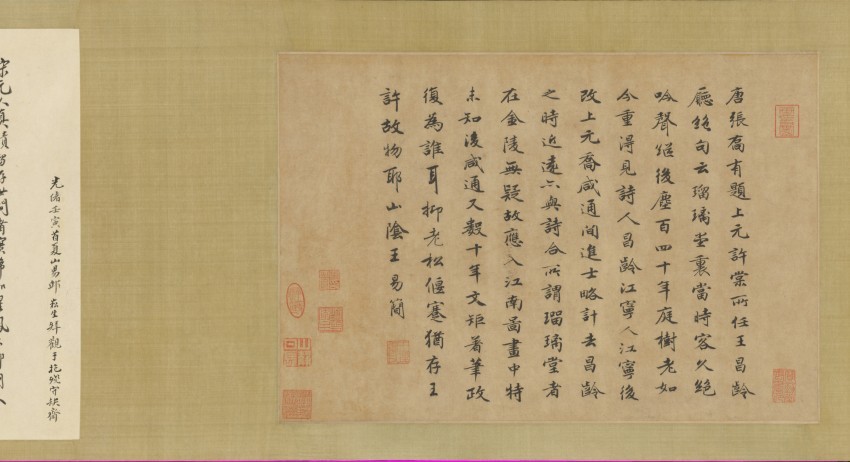 唐張喬有題上元許棠所任王昌齡
廳絕句云瑠璃堂裏當時客久絕
吟聲繼後塵百四十年庭樹老如
今重得見詩人昌齡江寧人江寧後
改上元喬咸通間進士略計去昌齡
之時近遠亦與詩合所謂瑠璃堂者
在金陵無疑故應入江南畵畫中特
未知後咸通又數十年文矩著筆政
復為誰耳抑老松偃蹇猶存王
許故物耶山陰王易簡
光緒壬寅首夏山易邨 生拜觀于抱殘守缺齋
宋元人真蹟留存世間者